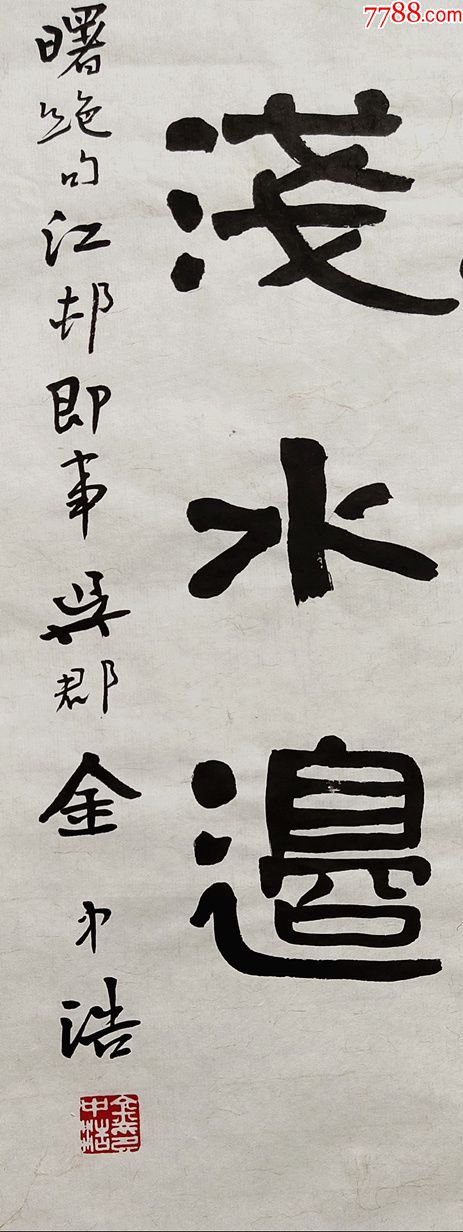 7788.com
淺水邊
曙絶句江邨即事吳郡金中浩
金中浩印